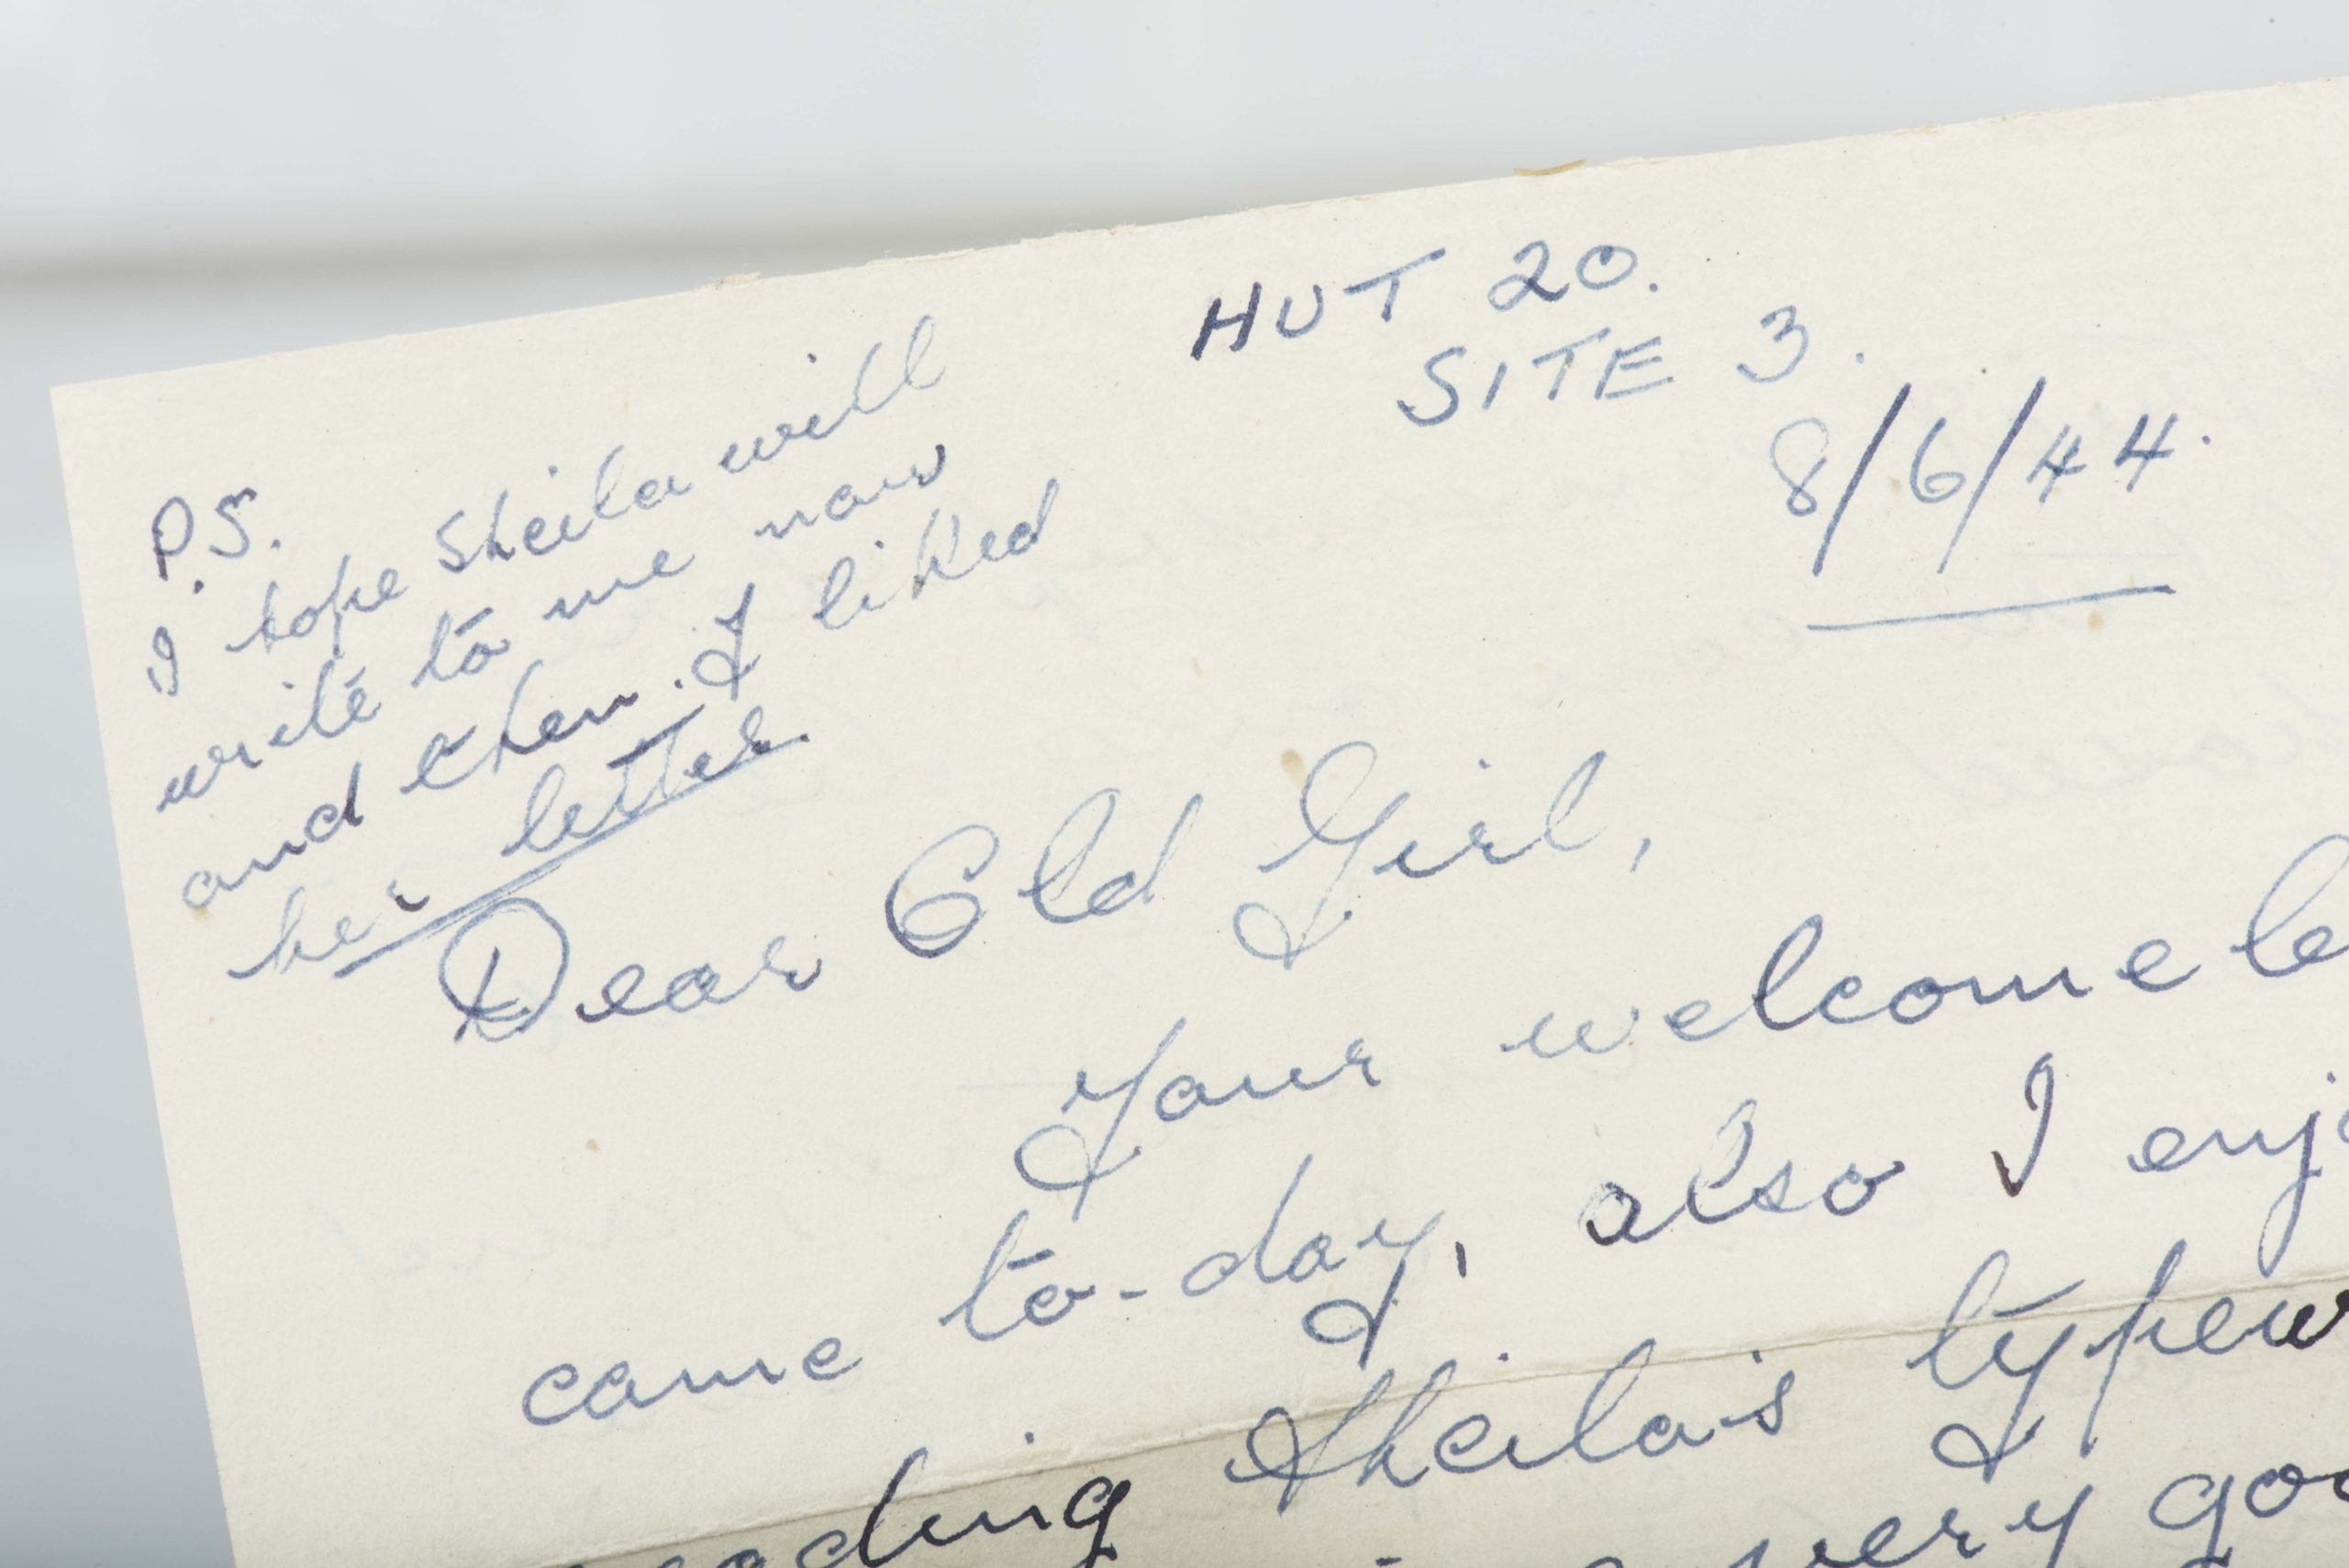 HUT 20.
SITE 3.
8/6/44.
P.S.
I hope Sheila will
write to me now
and then. I liked
her letter.
Dear Old Girl,
Your welcome le
came to-day, also I enj
eading Sheila's typew
very goo